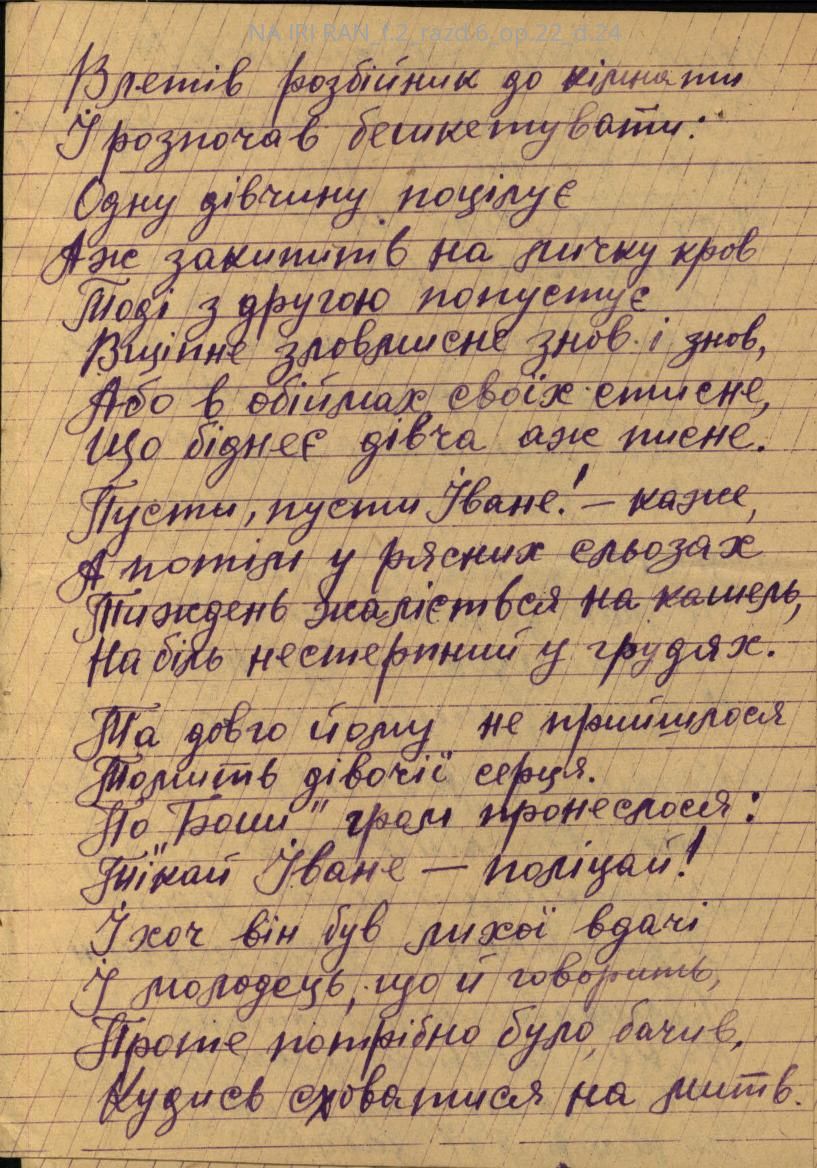 NA IRI RAN_f.2_razd.6_op.22_d.24
Влетів розбійник до кімнати
І розпочав бешкетувати:
Одну дівчину поцілує
Аж закипить на личку кров
Тоді з другою попустує
Вщіпне зловмисне знов і знов,
Або в обіймах своїх стисне,
Що біднеє дівча аж писне.
Пусти, пусти Іване! – каже,
А потім у рясних сльозах
Тиждень жаліється на кашель,
На біль нестерпний у грудях.
Та довго йому не прийшлося
Томить дівочії серця.
По "Боши" гром пронеслося:
Тікай Іване — поліцай!
І хоч він був лихої вдачі
І молодець, що й говорить,
Проте потрібно було, бачив,
Кудись сховатися на мить.